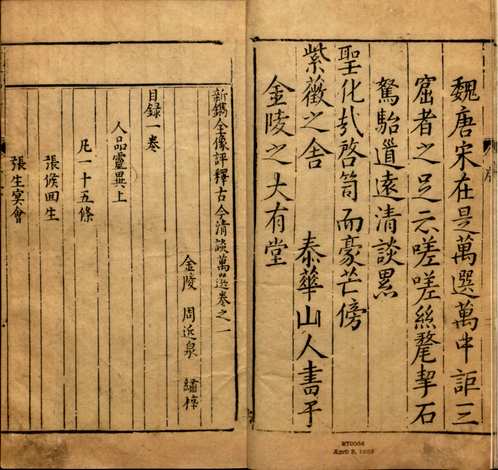 魏唐宋在是萬選萬中詎三
窟者之足云嗟嗟絲氂挈石
駑駘道遠清談累
聖化孔啓笥而豪芒傍
紫薇之舍 泰華山人書于
金陵之大有堂
序
新鐫全像評釋古今清談萬選卷之一
金陵 周近泉 繡梓
目錄一卷
人品靈異上
凡一十五條
張候回生
張生冥會
April 2, 1938